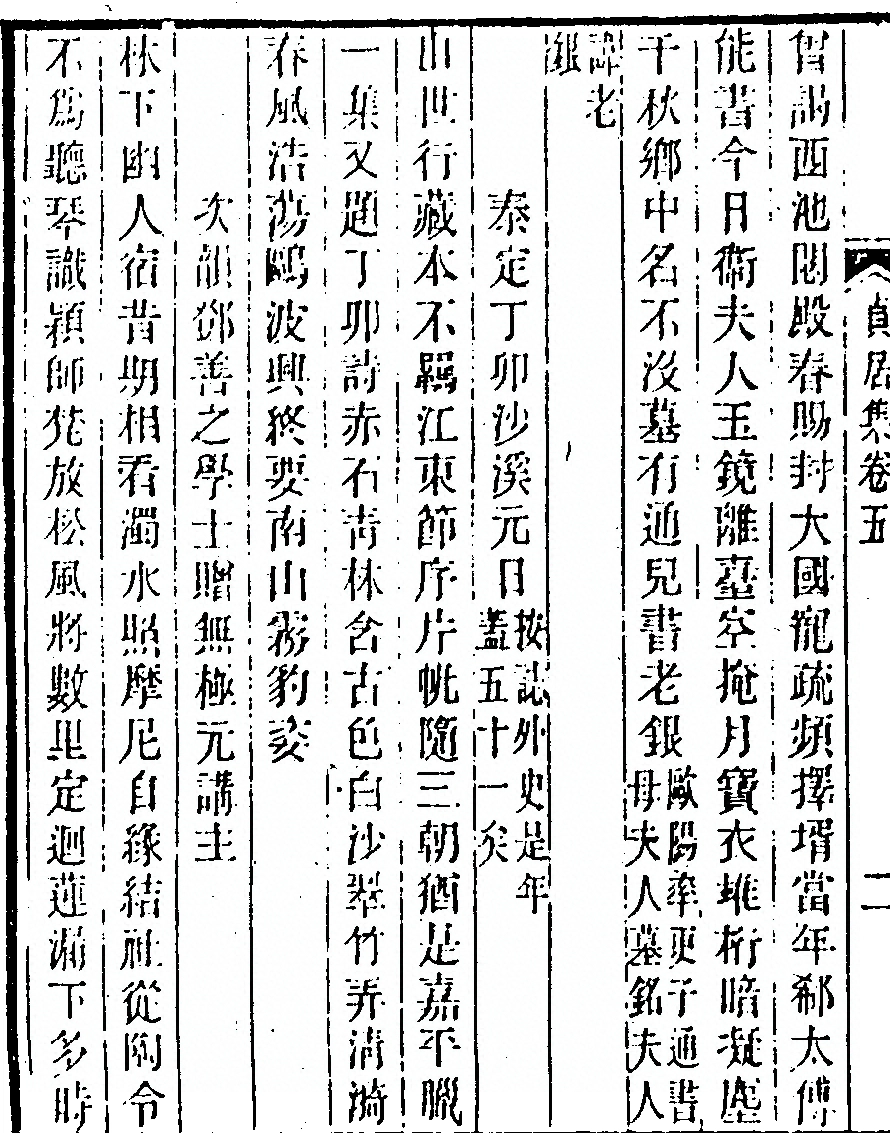 貞居集卷五
二
曾謁西池閟殿春賜封大國寵疏頻擇壻當年郗太傅
能書今日衛夫人玉鏡離臺空掩月寶衣堆桁暗凝塵
千秋鄉中名不沒墓有通兒書老銀歐陽率更子通書
母夫人墓銘夫人
諱老
銀
泰定丁卯沙溪元日按誌外史是年
蓋五十一矣
出世行藏本不羈江東節序片帆隨三朝猶是嘉平臘
一集又題丁卯詩赤石靑林含古色白沙翠竹弄淸漪
春風浩蕩鷗波興終要南山霧豹姿
次韻鄧善之學士贈無極元講主
林下幽人宿昔期相看濁水照摩尼自緣結社從陶令
不爲聽琴識穎師梵放松風將數里定迴蓮漏下多時